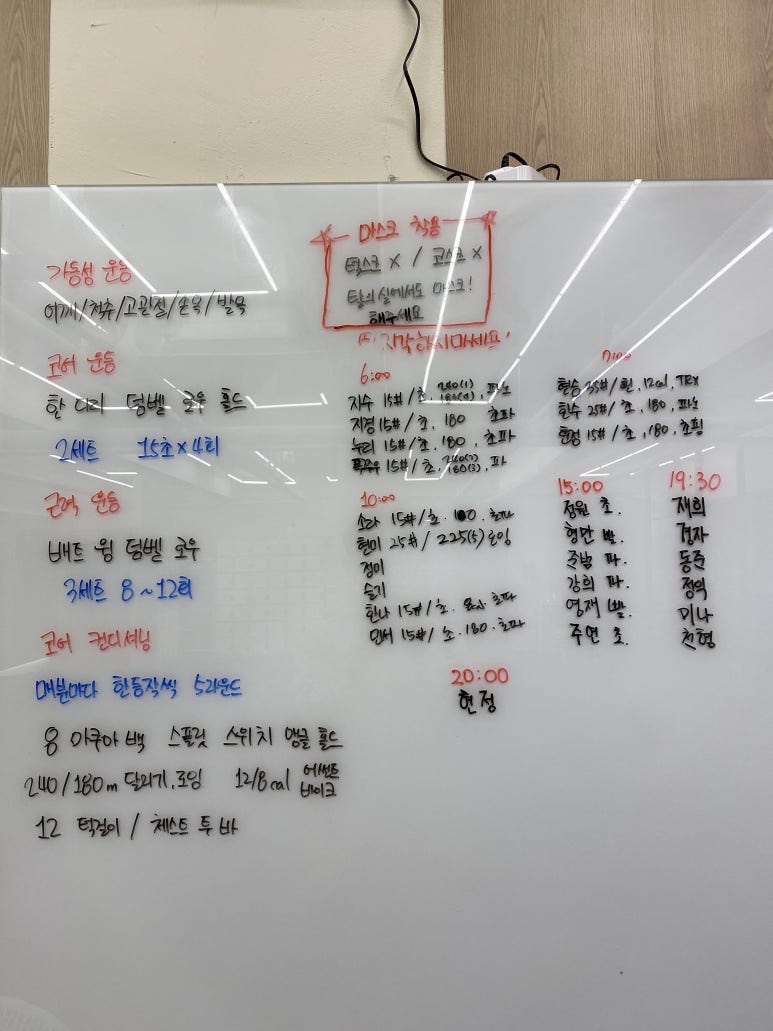 마스크 착용
턱스크 X / 코스크 X
탈의실에서도 마스크!
해주세요
지각하지마세요!
가동성 운동
어깨/척추/고관절/손목/발목
코어 운동
한 다리 덩벨 로우 홀드
2세트 15초x4회
근력 운동
배트 윙 덤벨 로우
3세트 8~12회
코어 컨디셔닝
매분마다 한동작씩 5라운드
8 아쿠아 백 스플릿 스위치 앵글 홀드
240/180m 달리기, 로잉 12/8cal 어썰트 바이크
12 턱걸이 / 체스트 투 바
6:00
지수 15# / 초. 240(1) 180(4), 파노
지경 15# / 초. 180 초파
누리 15# / 초. 180, 초파
15# / 초. 240(2) 180(3), 파
7:00
형승 35# / 흰, 12cal, TRX
한수 25# / 초, 180, 파노
15# / 초, 180, 초핑
10:00
소라 15# / 초. 초파
현미 25# / 225(5) 로잉
정미
슬기
한나 15# / 초. 8cal. 초파
민서 15# / 초. 180. 초파
15:00
정원 초.
형만 빨.
준남 파.
강희 파.
영재 빨.
주연 초.
19:30
재희
경자
동준
정익
미나
천형
20:00
현정